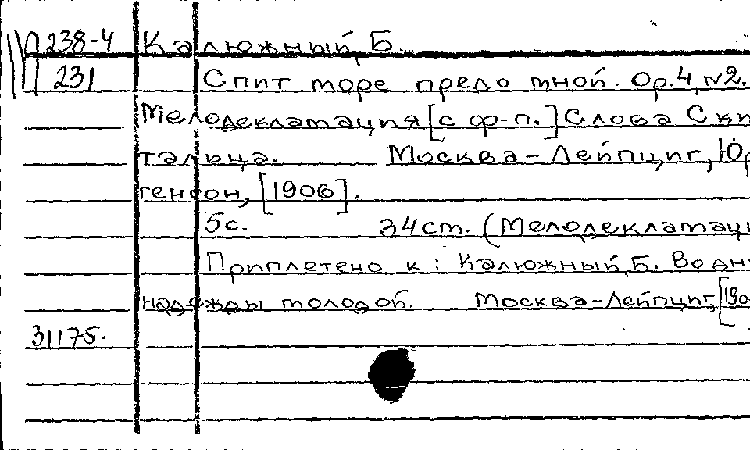 П 238-4 Калюжный, Б.
231 Спит море предо мной. Ор.4, №2.
Мелодекламация [с ф-п.] Слова Ски
тальца. Москва-Лейпциг, Юр
генсон, [1906].
5с. 34см. (Мелодекламаци
Приплетено к: Калюжный, Б. Водн
надежды молодой. Москва-Лейпциг, [190
31175.